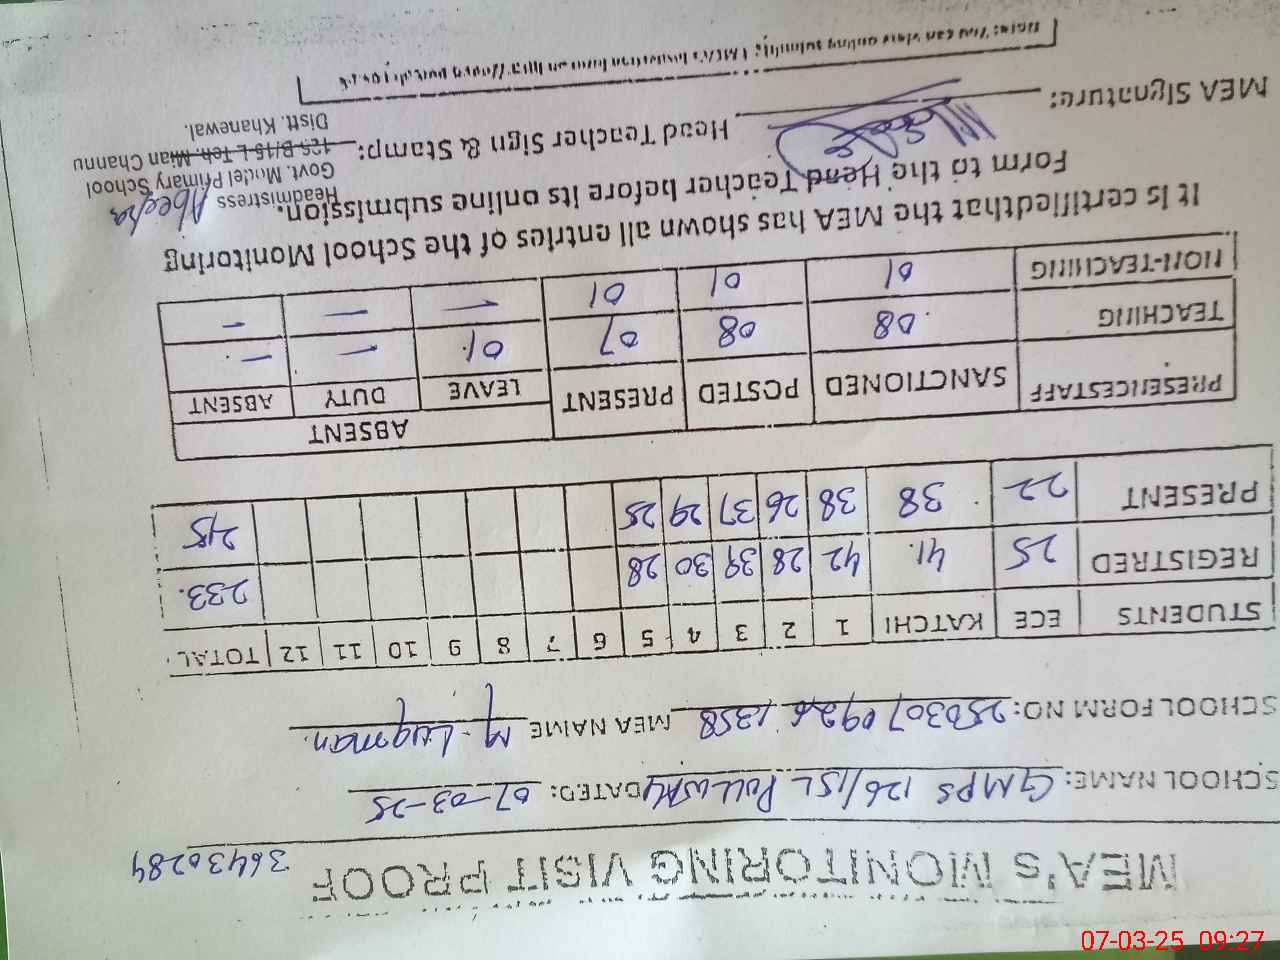 MEA's MONITORING VISIT PROOF
36430284
SCHOOL NAME: GMPS 126/15L DATED: 07-03-25
SCHOOL FORM NO: 2503070926 1358 MEA NAME M. Luqman.
STUDENTS ECE KATCHI 1 2 3 4 5 6 7 8 9 10 11 12 TOTAL
REGISTRED 25 41. 42 28 39 30 28 233.
PRESENT 22 38 38 26 37 29 25 215
ABSENT
PRESENCESTAFF SANCTIONED POSTED PRESENT LEAVE DUTY ABSENT
TEACHING 08 08 07 01 - -
NON-TEACHING 01 01 01 - - -
It is certifiedthat the MEA has shown all entries of the School Monitoring
Form to the Head Teacher before its online submission.
MEA Signature: Head Teacher Sign & Stamp:
Headmistress
Govt. Model Primary School
125-B/15-L Teh. Mian Channu
Distt. Khanewal.
Note: You can view online submitted MEA's
07-03-25 09:27